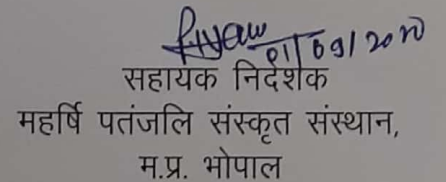 01/09/2020
सहायक निदेशक
महर्षि पतंजलि संस्कृत संस्थान,
म.प्र. भोपाल